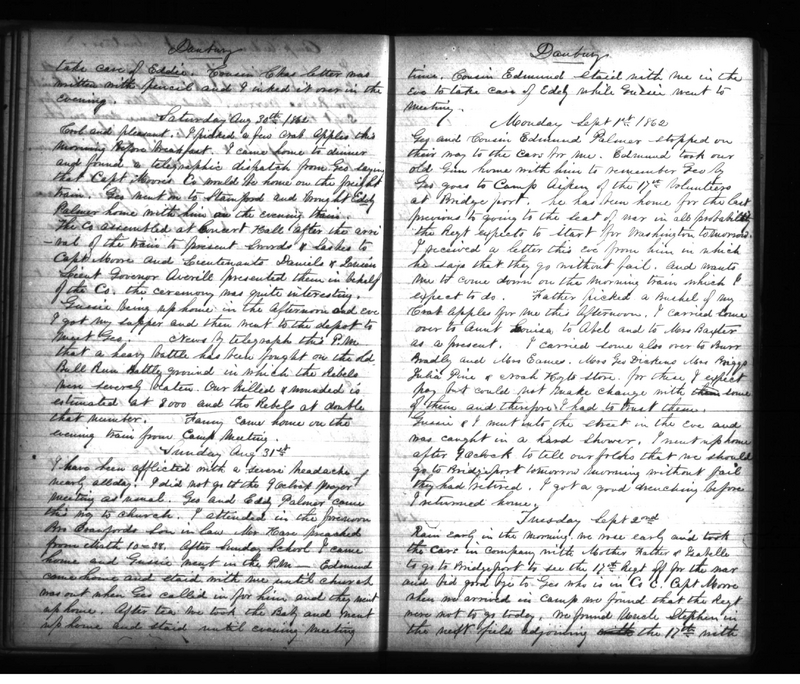 Danbury
take care of Eddie. Cousin Chas letter was
written with pencil and I inked it over in the
evening.
Saturday Aug 30th 1862
Cool and pleasant. I picked a few Crab Apples this
morning before breakfast. I came home to dinner
and found a telegraphic dispatch from Geo saying
that Capt Moores Co would go home on the freight
train. Geo went to Stamford and brought Eddy
Palmer home with him on the evening train.
The Co assembled at Concert Hall after the arri
-val of the train to present Swords & Sashes to
Capt Moore and Lieutenants Daniels &
Lieut Govonor Averill presented them in behalf
of the Co. the ceremony was quite interesting.
Gussie being up home in the afternoon and eve
I got my supper and then went to the depot to
meet Geo. News by telegraph this P.M.
that a heavy battle has been fought on the old
Bull Run battleground in which the Rebels
were severely beaten. Our killed & wounded is
estimated at 8000 and the Rebels at double
that number. Fanny came home on the
evening train from Camp Meeting.
Sunday Aug 31st
I have been afflicted with a severe headache
nearly all day. I did not go to the 9 oclock prayer
meeting as usual. Geo and Eddy Palmer came
this way to church. I attended in the forenoon
Bro Crawfords Son in law Mr Hare preached
from 10-28. After Sunday School I came
home and Gussie went in the P.M. — Edmund
came home and staid with me until church
was out when Geo called in for him and they went
up home. After tea we took the Baby and went
up home and staid until evening meeting
Danbury
time. Cousin Edmund staid with me in the
eve to take care of Eddy while Gussie went to
meeting.
Monday Sept 1st 1862
Geo and Cousin Edmund Palmer stopped on
their way to the cars for me. Edmund took our
old Gun home with him to remember Geo by
Geo goes to Camp Aiken of the 17th Volunteers
at Bridgeport. he has been home for the last
previous to going to the seat of war in all probability
the Regt expects to start for Washington tomorrow.
I received a letter this eve from him in which
he says that they go without fail. and wants
me to come down on the morning train which I
expect to do. Father picked a bushel of my
Crab Apples for me this Afternoon. I carried some
over to Aunt Louisa to Abel and to Mrs Baxter
as a present. I carried some also over to Burr
Bradly and Mrs Eames. Mrs Geo Dickens Mrs Briggs
Julia Pine & Noah Hoyts store. for these I expect
pay but could not make change with them some
of them and therefore I had to trust them.
Gussie & I went into the street in the eve and
was caught in a hard shower. I went up home
after 9 oclock to tell our folks that we should
go to Bridgeport tomorrow morning without fail
they had retired. I got a good drenching before
I returned home.
Tuesday Sept 2nd
Rain early in the morning. we rose early and took
the Cars in company with Mother Father & Isabelle
to go to Bridgeport to see the 17th Regt off for the war
and bid good bye to Geo who is in Co C. Capt Moore
when we arrived in camp we found that the Regt
were not to go today. We found Uncle Stephen in
the next field adjoining with the 17th with